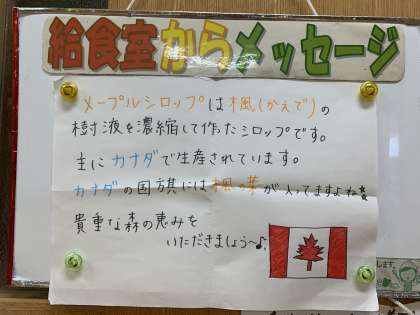 給食室からメッセージ
メープルシロップは楓(かえで)の
樹液を濃縮して作ったシロップです。
主にカナダで生産されています。
カナダの国旗には楓の葉が入ってますよね☆
貴重な森の恵みを
いただきましょう〜♪
します